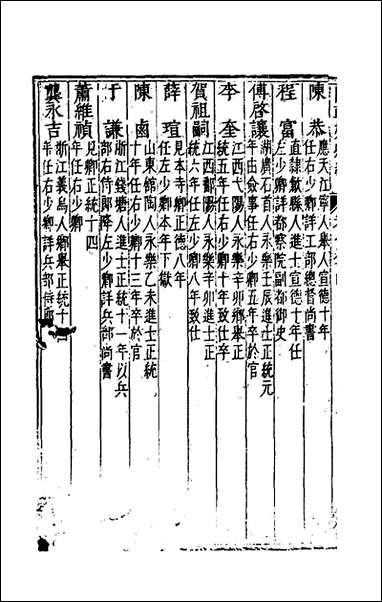 陳恭
應天江寧人舉人宣德十年
任右少卿詳工部總督尚書
程富
直隷歙縣人進士宣德十年任
左少卿詳都察院副都御史
傅啓讓
湖廣石首人永樂壬辰進士正統元
年由僉事任右少卿五年卒於官
李奎
江西弋陽人永樂辛卯鄉舉正
統五年任右少卿十年致仕卒
賀祖嗣
江西鄱陽人永樂辛卯進士正
統六年任左少卿八年致仕
薛瑄
見本寺卿正德八年
任左少卿本年下獄
陳鹵
山東館陶人永樂乙未進士正統
十年任右少卿十三年卒於官
于謙
浙江錢塘人進士正統十一年以兵
部右侍郎降左少卿詳兵部尚書
蕭維禎
見卿正統十四
年任右少卿
龔永吉
浙江義烏人鄉舉正統十四
年任右少卿詳兵部侍郎